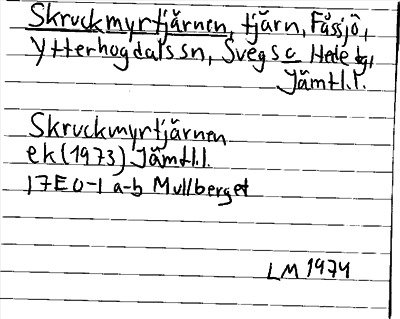 Skruckmyrtjärnen, tjärn, Fåssjö,
Ytterhogdals sn, Svegs o Hede tgl
Jämtl.l.
Skruckmyrtjärnen
ek (1973) Jämtl.l.
17E 0-1 a-b Mullberget
LM 1974